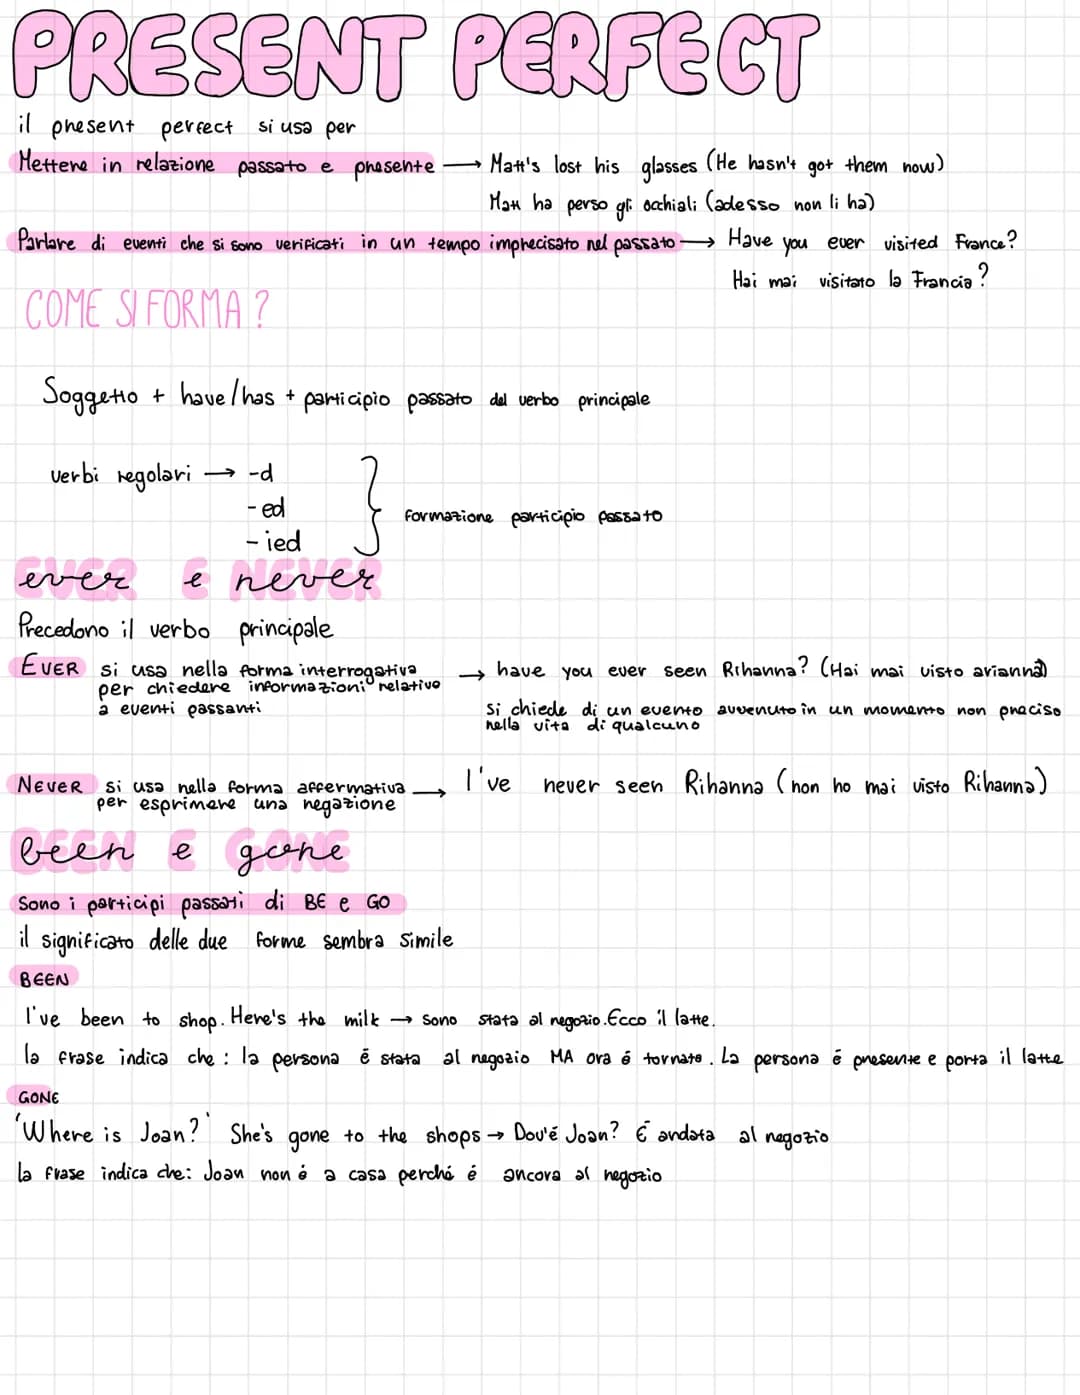 PRESENT PERFECT
il present perfect si usa per
Mettere in relazione passato e presente → Matt's lost his glasses (He hasn't got them now)
Matt ha perso gli occhiali (adesso non li ha)
Parlare di eventi che si sono verificati in un tempo imprecisato nel passato → Have you ever visited France?
Hai mai visitato la Francia?
COME SI FORMA?
Soggetto + have/has + participio passato del verbo principale
verbi regolari → -d
-ed
-ied
formazione participio passato
ever e never
Precedono il verbo principale
EVER si usa nella forma interrogativa → have you ever seen Rihanna? (Hai mai visto arianna)
per chiedere informazioni relativo
a eventi passanti
si chiede di un evento avvenuto in un momento non preciso
nella vita di qualcuno
NEVER si usa nella forma affermativa → I've never seen Rihanna (non ho mai visto Rihanna)
per esprimere una negazione
been e gone
Sono i participi passati di BE e GO
il significato delle due forme sembra simile
BEEN
I've been to shop. Here's the milk → sono stata al negozio. Ecco il latte.
la frase indica che: la persona é stata al negozio MA ora é tornata. La persona é presente e porta il latte
GONE
'Where is Joan?' She's gone to the shops → Dov'é Joan? É andata al negozio
la frase indica che: Joan non é a casa perché é ancora al negozio